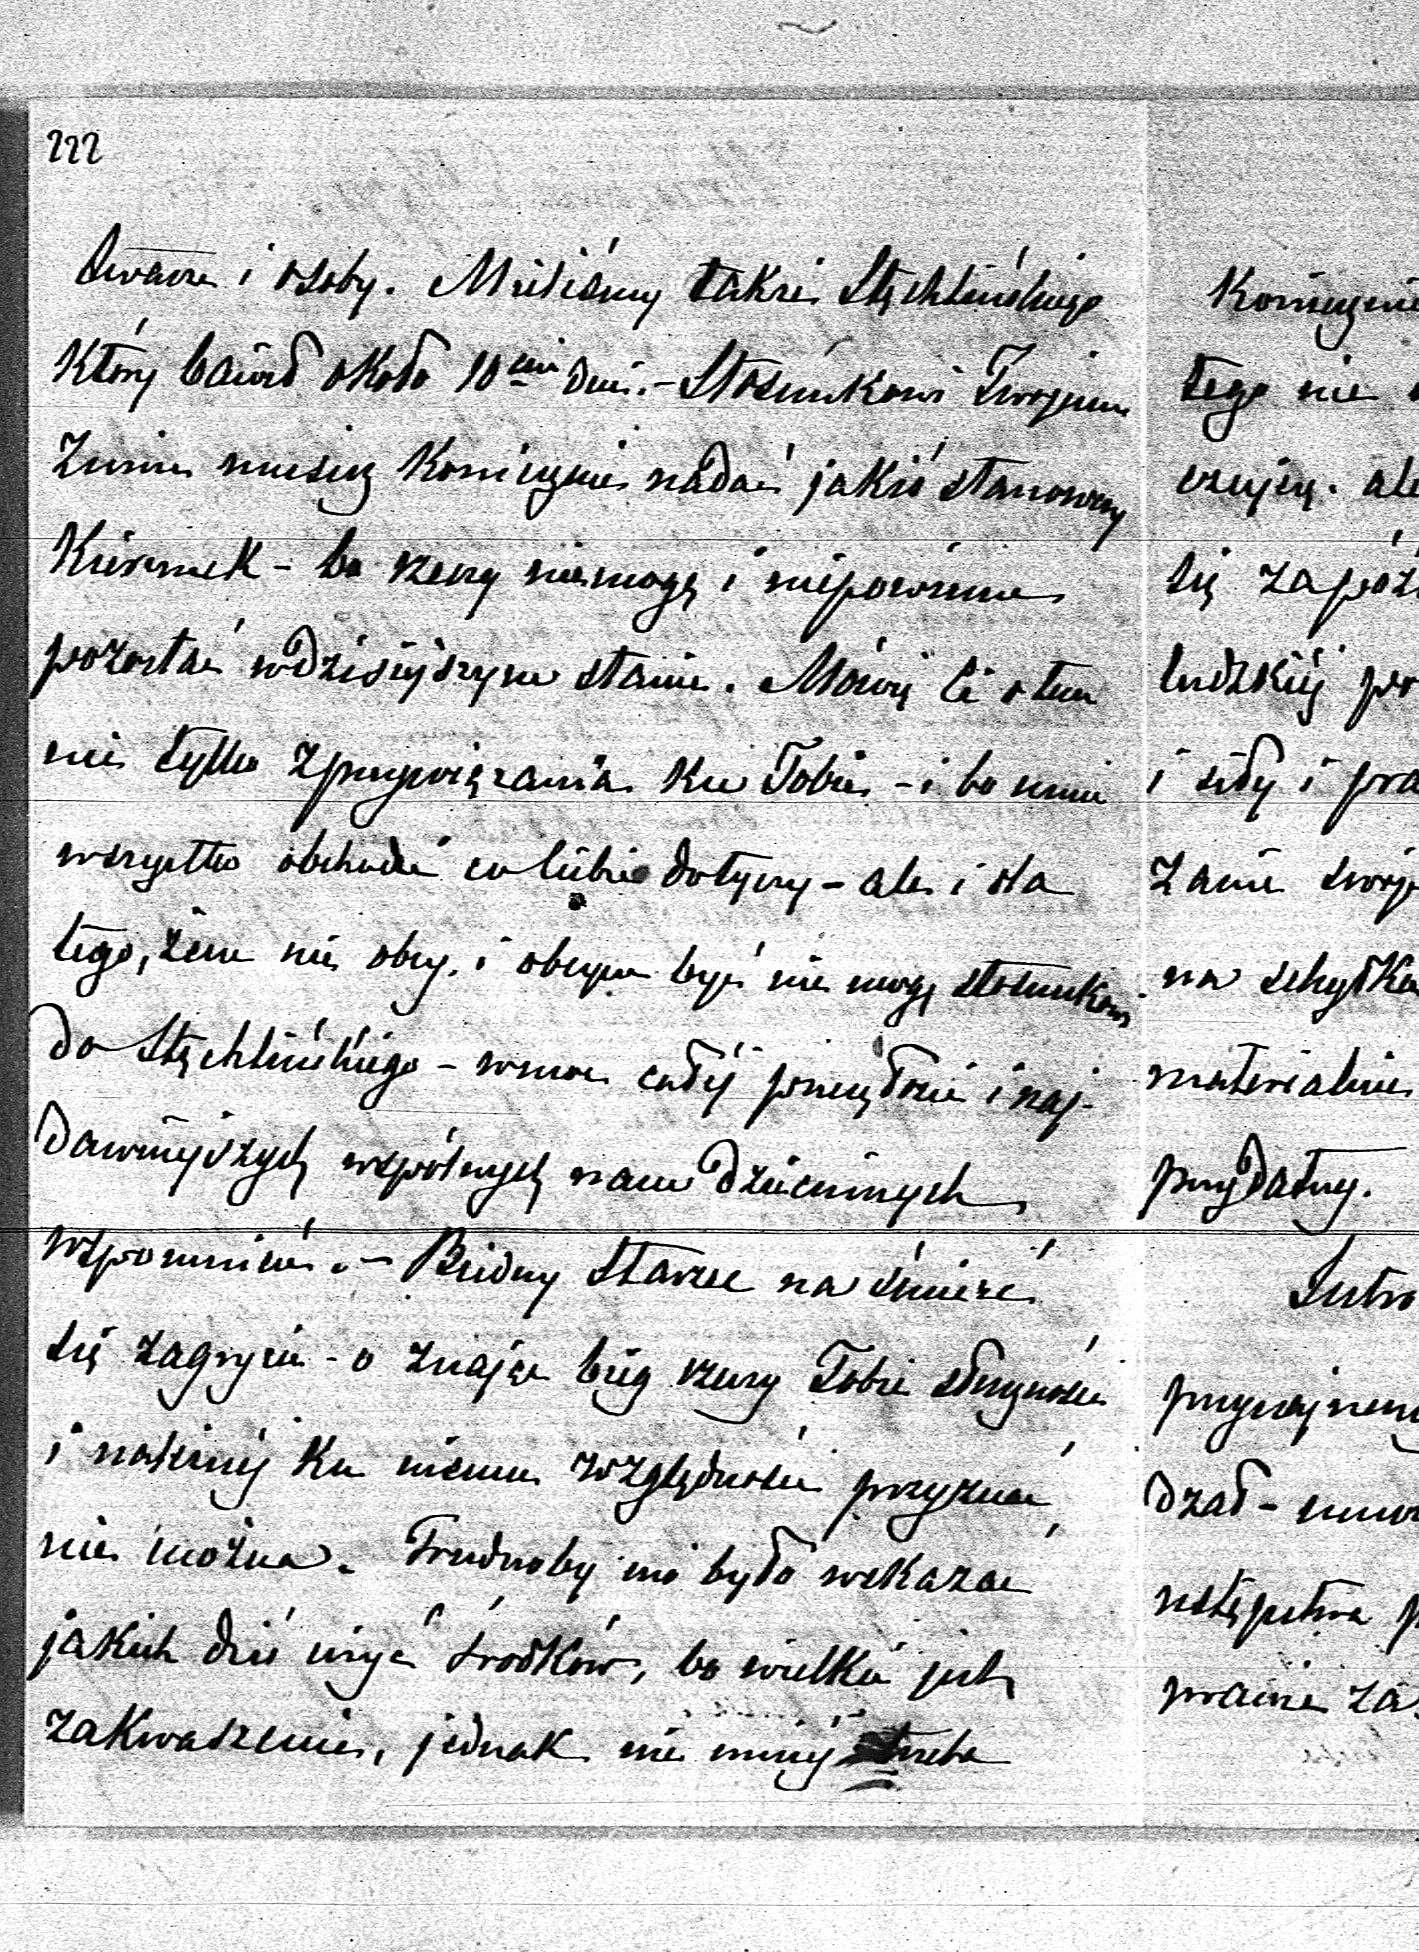 222
twarze i osoby. Mieliśmy także Stęchlińskiego
który bawił około 10ciu dni. – Stosunkowi Twojemu
z nim musisz koniecznie nadać jakiś stanowczy
kierunek – bo rzeczy niemogą i niepowinne
pozostać w dzisiejszym stanie. Mówię Ci o tem
nie tylko z przywiązania ku Tobie – i bo mnie
wszystko obchodzi co ciebie dotyczy – ale i dla
tego, żem nie obcy i obcym być nie mogę stosunkowi
do Stęchlińskiego – w moc całej przeszłości i naj-
dawniejszych wspólnych nam dziecinnych
wspomnień. – Biedny starzec na śmierć
się zagryzie – a znając bieg rzeczy Tobie słuszności
i należnej ku niemu względności przyznać
nie można. Trudnoby mi było wskazać
jakich dziś użyć środków, bo wielkie jest
zakwaszenie, jednak nie mniej trzeba
Koniecznie
tego nie
czujesz. ale
się zapóź
ludzkiej po
i siły i pra
zanie swoje
na schyłku
materialnie
przydatny.
Jutro
przynajmniej
dział – umo
następstwa p
prawie za